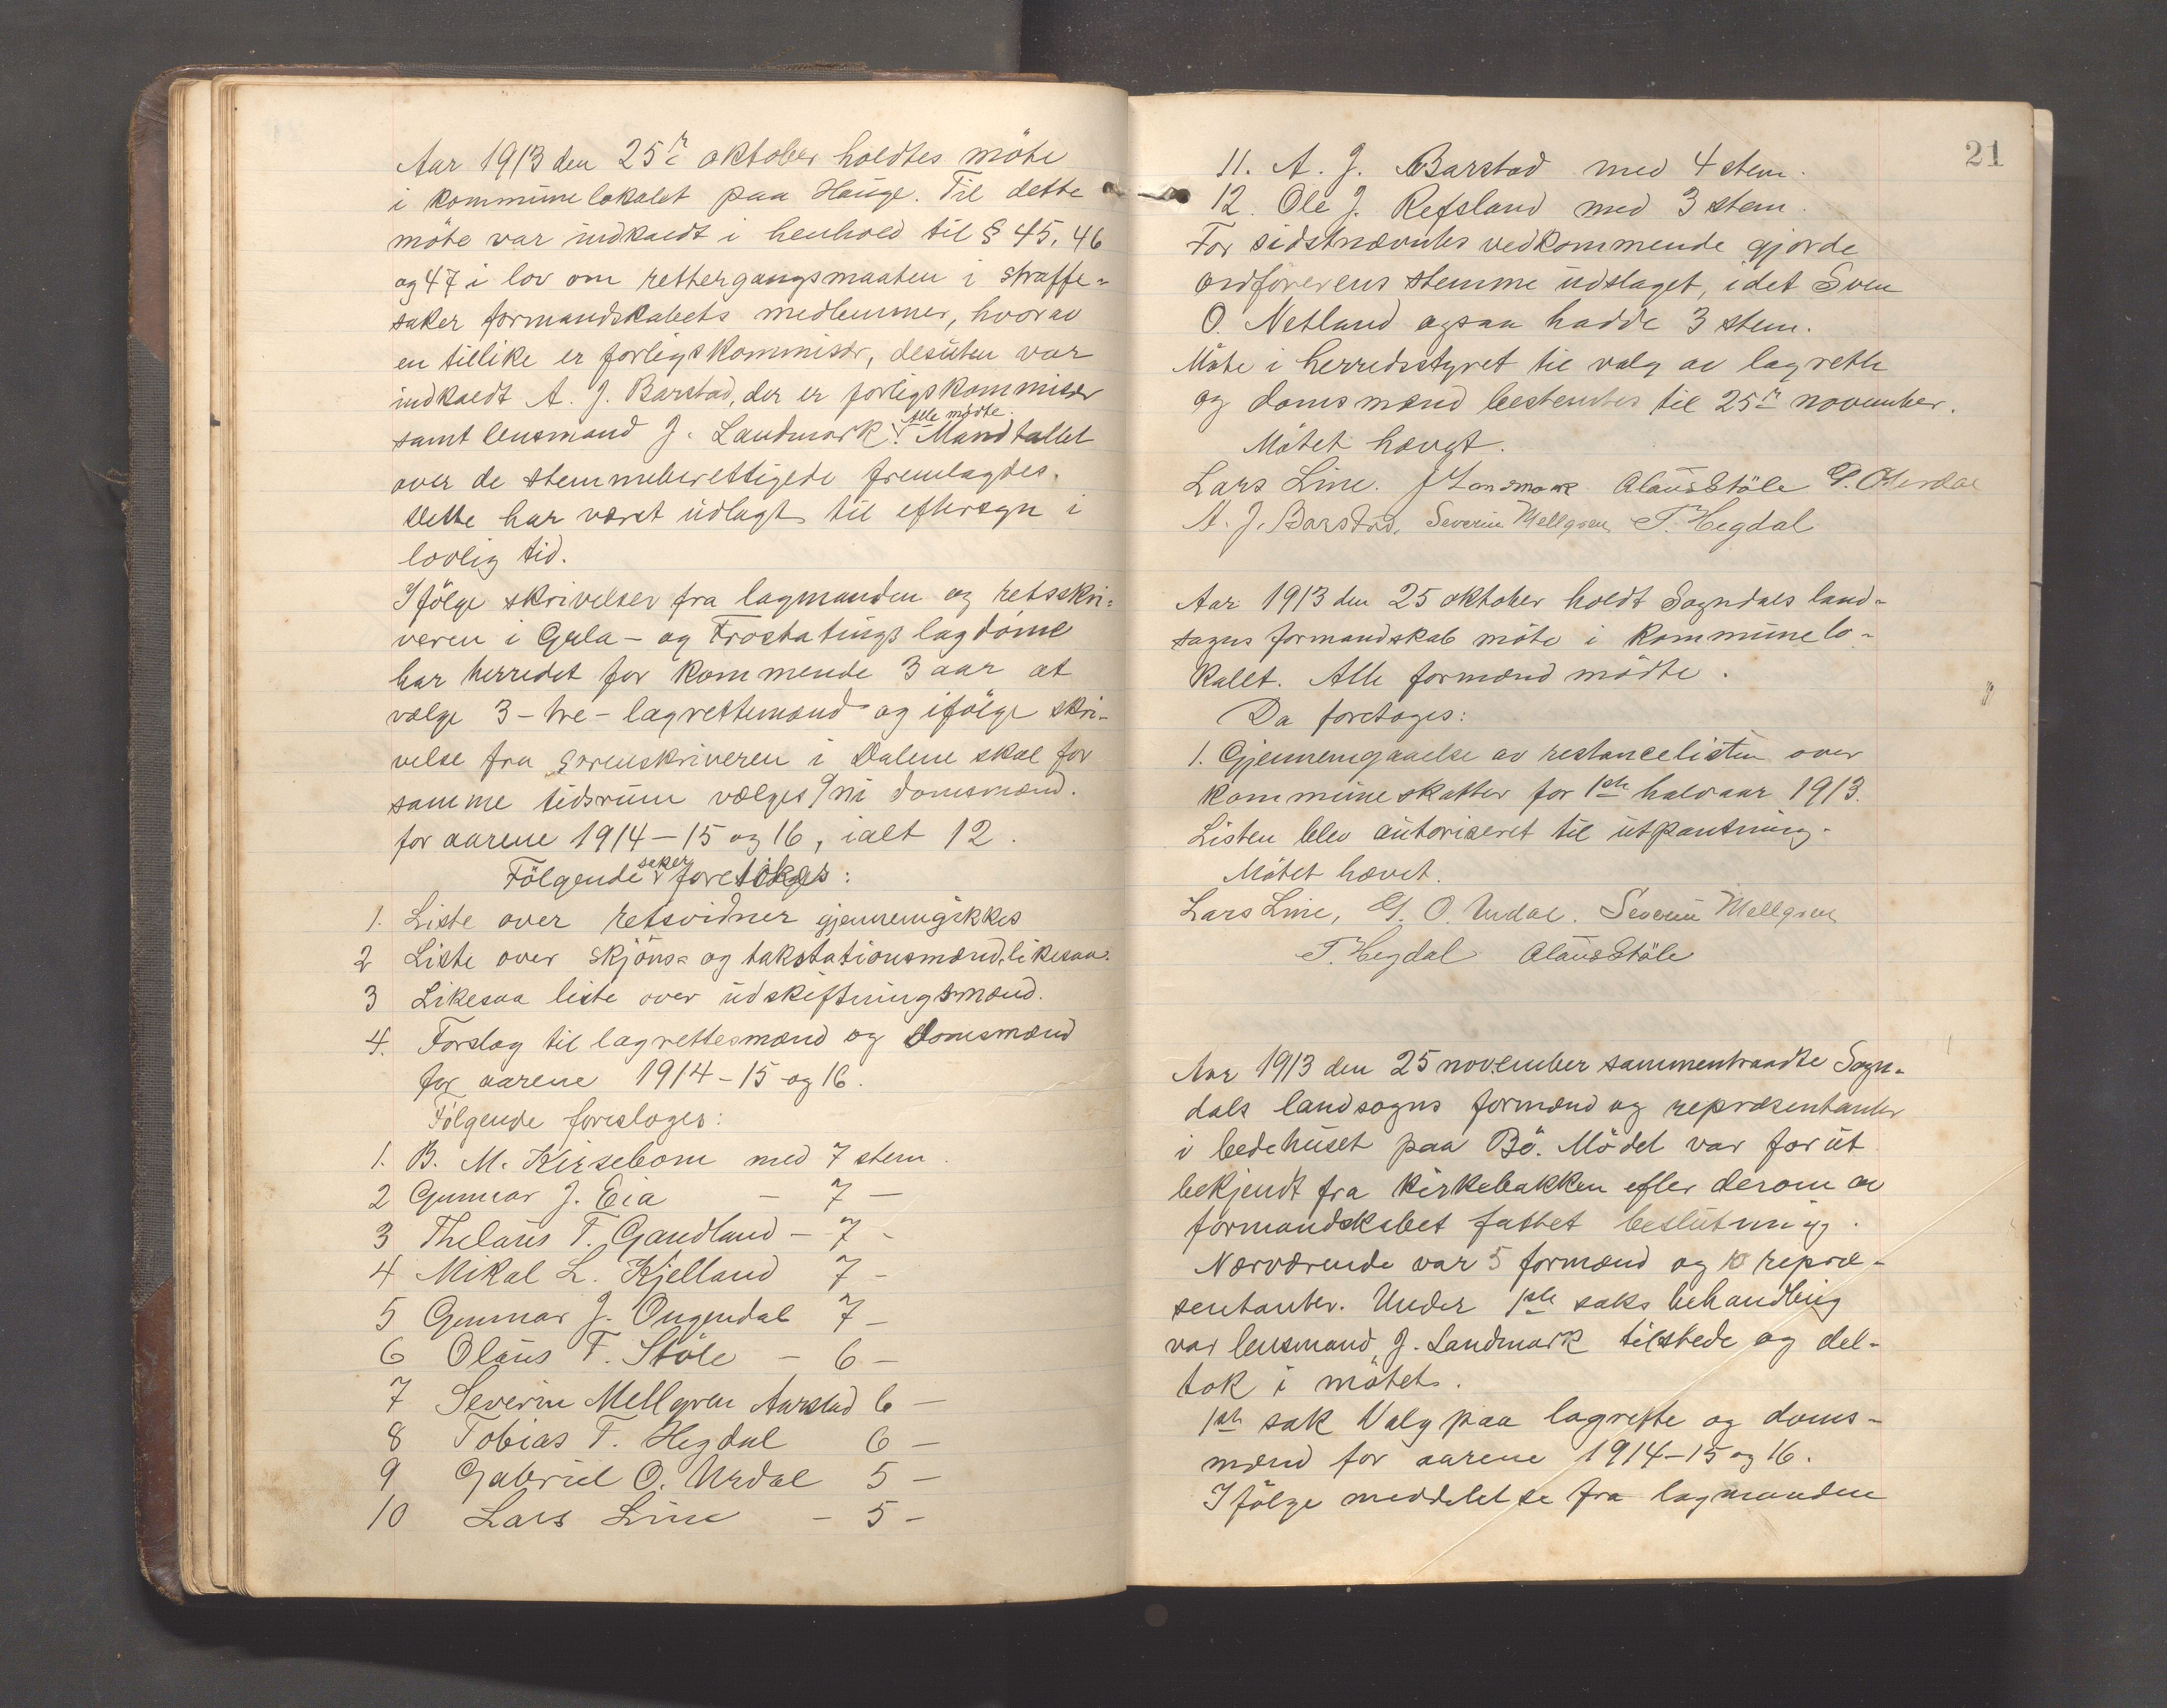 Aar 1913 den 25de oktober holdtes möte
i kommunelokalet paa Hauge. Til dette
möte var indkaldt i henhold til § 45, 46
og 47 i lov om rettergangsmaaten i straffe-
saker formandskabets medlemmer, hvorav
en tillike er forligskommisær, desuten var
indkaldt A. J. Barstad, der er forligskommisær
alle mödte.
samt lensmand J. Landmark. Mandtallet
over de stemmeberettigede fremlagdes.
Dette har været udlagt til eftersyn i
lovlig tid.
Ifölge skrivelser fra lagmanden og retsskri-
veren i Gula- og Frostatings lagdöme
har herredet for kommende 3 aar at
vælge 3 - tre - lagrettemænd og ifölge skri-
velse fra sorenskriveren i Dalene skal for
samme tidsrum vælges 9 ni domsmænd.
for aarene 1914-15 og 16, ialt 12.
saker
Fölgende foretokes:
1. Liste over retsvidner gjennemgikkes
2 Liste over skjöns- og takstationsmænd, likesaa.
3 Likesaa liste over udskiftningsmænd.
4. Forslag til lagrettesmænd og domsmænd
for aarene 1914-15 og 16.
Fölgende foresloges:
1. B. M. Kirsebom med 7 stem.
2 Gunnar J. Eia - 7 -
3 Thelaus T. Gandland - 7 -
4 Mikal L. Kjelland 7 -
5 Gunnar J. Ougendal 7 -
6 Olaus T. Stöle - 6 -
7 Severin Mellgren Aarstad 6 -
8 Tobias T. Hegdal 6 -
9 Gabriel O. Urdal 5 -
10 Lars Line - 5 -
21
11. A. J. Barstad med 4 stem.
12. Ole J. Refsland med 3 stem.
For sidstnævntes vedkommende gjorde
ordförerens stemme udslaget, idet Sven
O. Netland ogsaa hadde 3 stem.
Möte i herredsstyret til valg av lagrette
og domsmænd bestemtes til 25de november.
Mötet hævet.
Lars Line. J Landmark Olaus Stöle G. O Urdal
A. J. Barstad. Severin Mellgren T. Hegdal
Aar 1913 den 25 oktober holdt Sogndals land-
sogns formandskab möte i kommunelo-
kalet. Alle formænd mödte.
Da foretoges:
1. Gjennemgaaelse av restancelisten over
kommuneskatter for 1ste halvaar 1913.
Listen blev autoriseret til utpantning.
Mötet hævet.
Lars Line, G. O. Urdal. Severin Mellgren
T. Hegdal Olaus Stöle
Aar 1913 den 25 november sammentraadte Sogn-
dals landsogns formænd og repræsentanter
i bedehuset paa Bö. Mödet var forut
bekjendt fra kirkebakken efter derom av
formandskabet fattet beslutning.
Nærværende var 5 formænd og 10 repræ-
sentanter. Under 1ste saks behandling
var lensmand J. Landmark tilstede og del-
tok i mötet.
1ste sak Valg paa lagrette og doms-
mænd for aarene 1914-15 og 16.
Ifölge meddelelse fra lagmanden